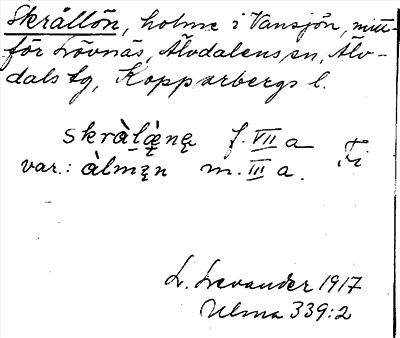 Skrållön, holme i Vansjön, mitt-
för Lövnäs, Älvdalens sn, Älv-
dals tg, Kopparbergs l.
skràlæ̀nę f. VII a
var.: àlmęn m. III a.
L. Levander 1917
Ulma 339:2